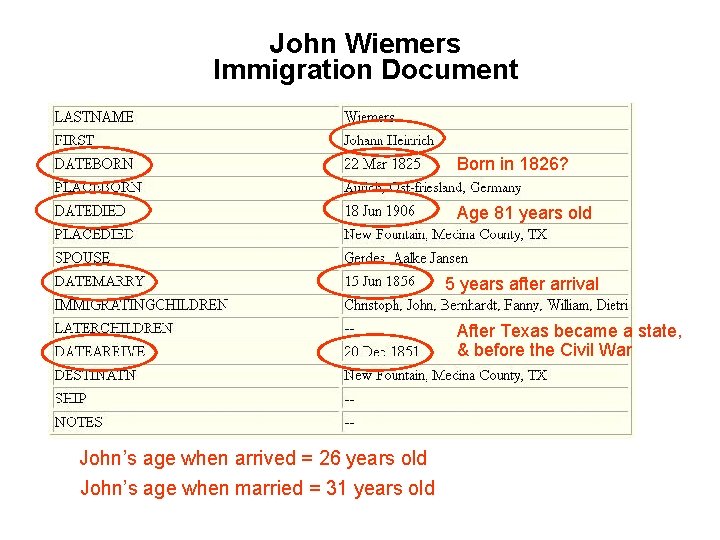 John Wiemers
Immigration Document
LASTNAME Wiemers
FIRST Johann Heinrich
DATEBORN 22 Mar 1825 Born in 1826?
PLACEBORN Aurich, Ost-friesland, Germany
DATEDIED 18 Jun 1906 Age 81 years old
PLACEDIED New Fountain, Medina County, TX
SPOUSE Gerdes, Aalke Jansen
DATEMARRY 15 Jun 1856 5 years after arrival
IMMIGRATINGCHILDREN Christoph, John, Bernhardt, Fanny, William, Dietri
LATERCHILDREN -- After Texas became a state,
DATEARRIVE 20 Dec 1851 & before the Civil War
DESTINATN New Fountain, Medina County, TX
SHIP --
NOTES --
John's age when arrived = 26 years old
John's age when married = 31 years old